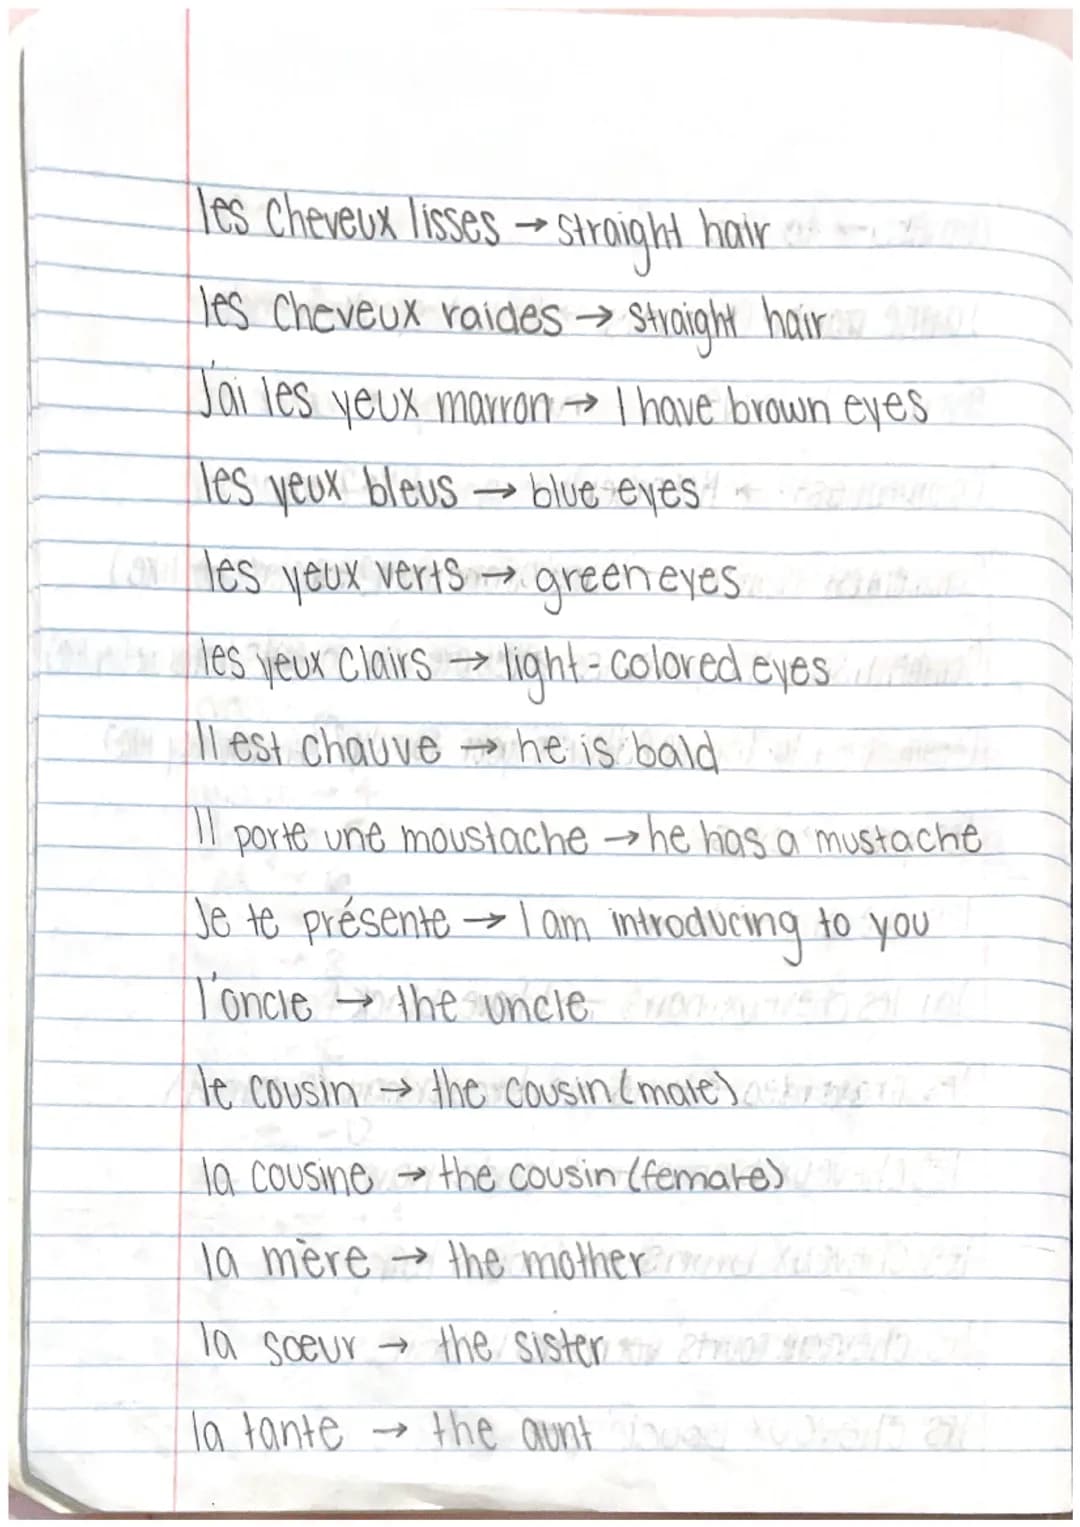 les cheveux lisses → straight hair
les cheveux raides → straight hair
J'ai les yeux marron → I have brown eyes
les yeux bleus → blue eyes
les yeux verts → green eyes
les yeux clairs → light-colored eyes
Il est chauve → he is bald
Il porte une moustache → he has a mustache
Je te présente → I am introducing to you
l'oncle → the uncle
le cousin → the cousin (male)
la cousine → the cousin (female)
la mère → the mother
la soeur → the sister
la tante → the aunt